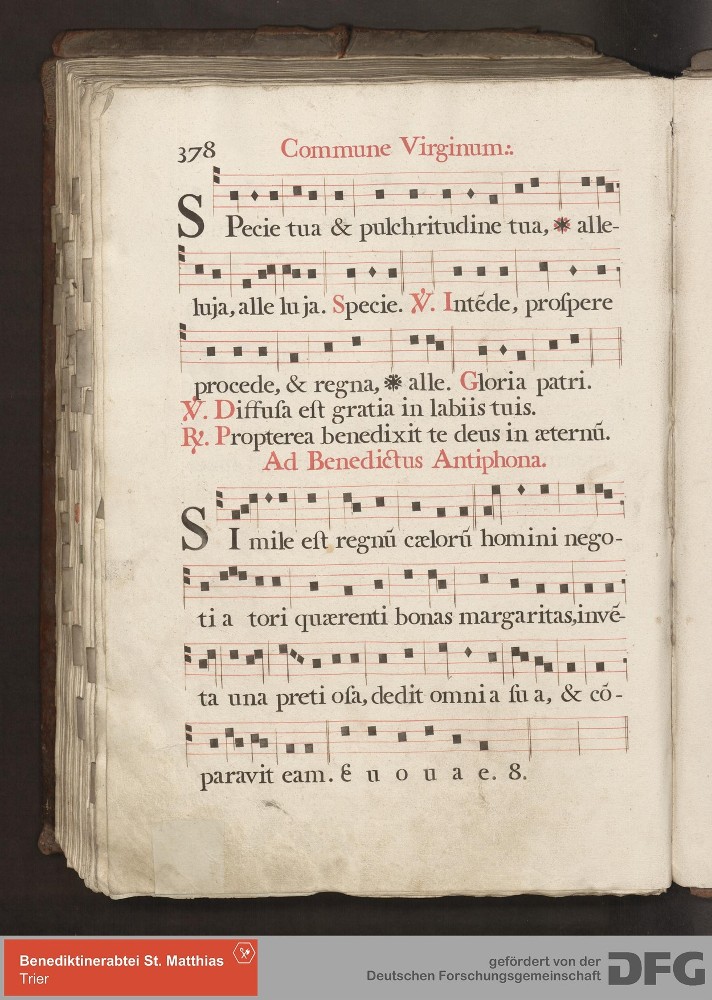 378 Commune Virginum:.
SPecie tua & pulchritudine tua, ⁕ alle-
luja, alle lu ja. Specie. ℣. Intẽde, proſpere
procede, & regna, ⁕ alle. Gloria patri.
℣. Diffuſa eſt gratia in labiis tuis.
℟. Propterea benedixit te deus in æternũ.
Ad Benedictus Antiphona.
SI mile eſt regnũ cælorũ homini nego-
ti a tori quærenti bonas margaritas, invẽ-
ta una preti oſa, dedit omni a ſu a, & cõ-
paravit eam. E u o u a e. 8.
Benediktinerabtei St. Matthias
Trier
gefördert von der
Deutschen Forschungsgemeinschaft DFG